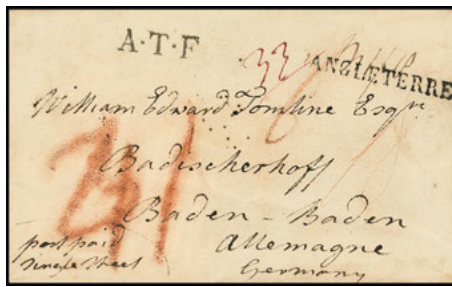 A·T·F
33
ANGLETERRE
William Edward Tomline Esqre
Badischerhoff
Baden - Baden
Allemagne
Germany
post paid
single sheet
31